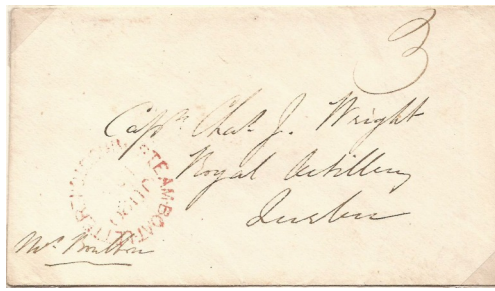 3
Capt. Chas. J. Wright
Royal Artillery
Quebec
STEAM-BOAT LETTER